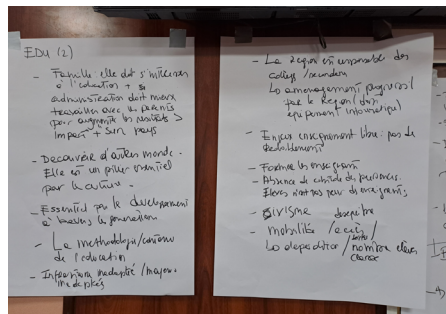 EDU (2)
- Famille elle doit s'intéresser
à l'éducation +
administration doit mieux
travailler avec les parents
pour augmenter les résultats >
Impact + sur pays
- Découverte d'autres monde.
Elle est un pilier essentiel
par la culture.
- Essentiel pr le développement
à travers les générations
- La méthodologie/contenu
de l'éducation
- Infrastructure inadapté/moyens
inadaptés
- La Région est responsable des
collèges/secondaire
Lo aménagement
par la Région (dont
équipement informatique)
- Enjeux enseignement libre: pas de
- Former les enseignants
- Absence de contrôle de
Elèves n'ont pas peur d'enseignants
- CIVISME discipline
- mobilité / accès
Lo / nombre élèves
classe